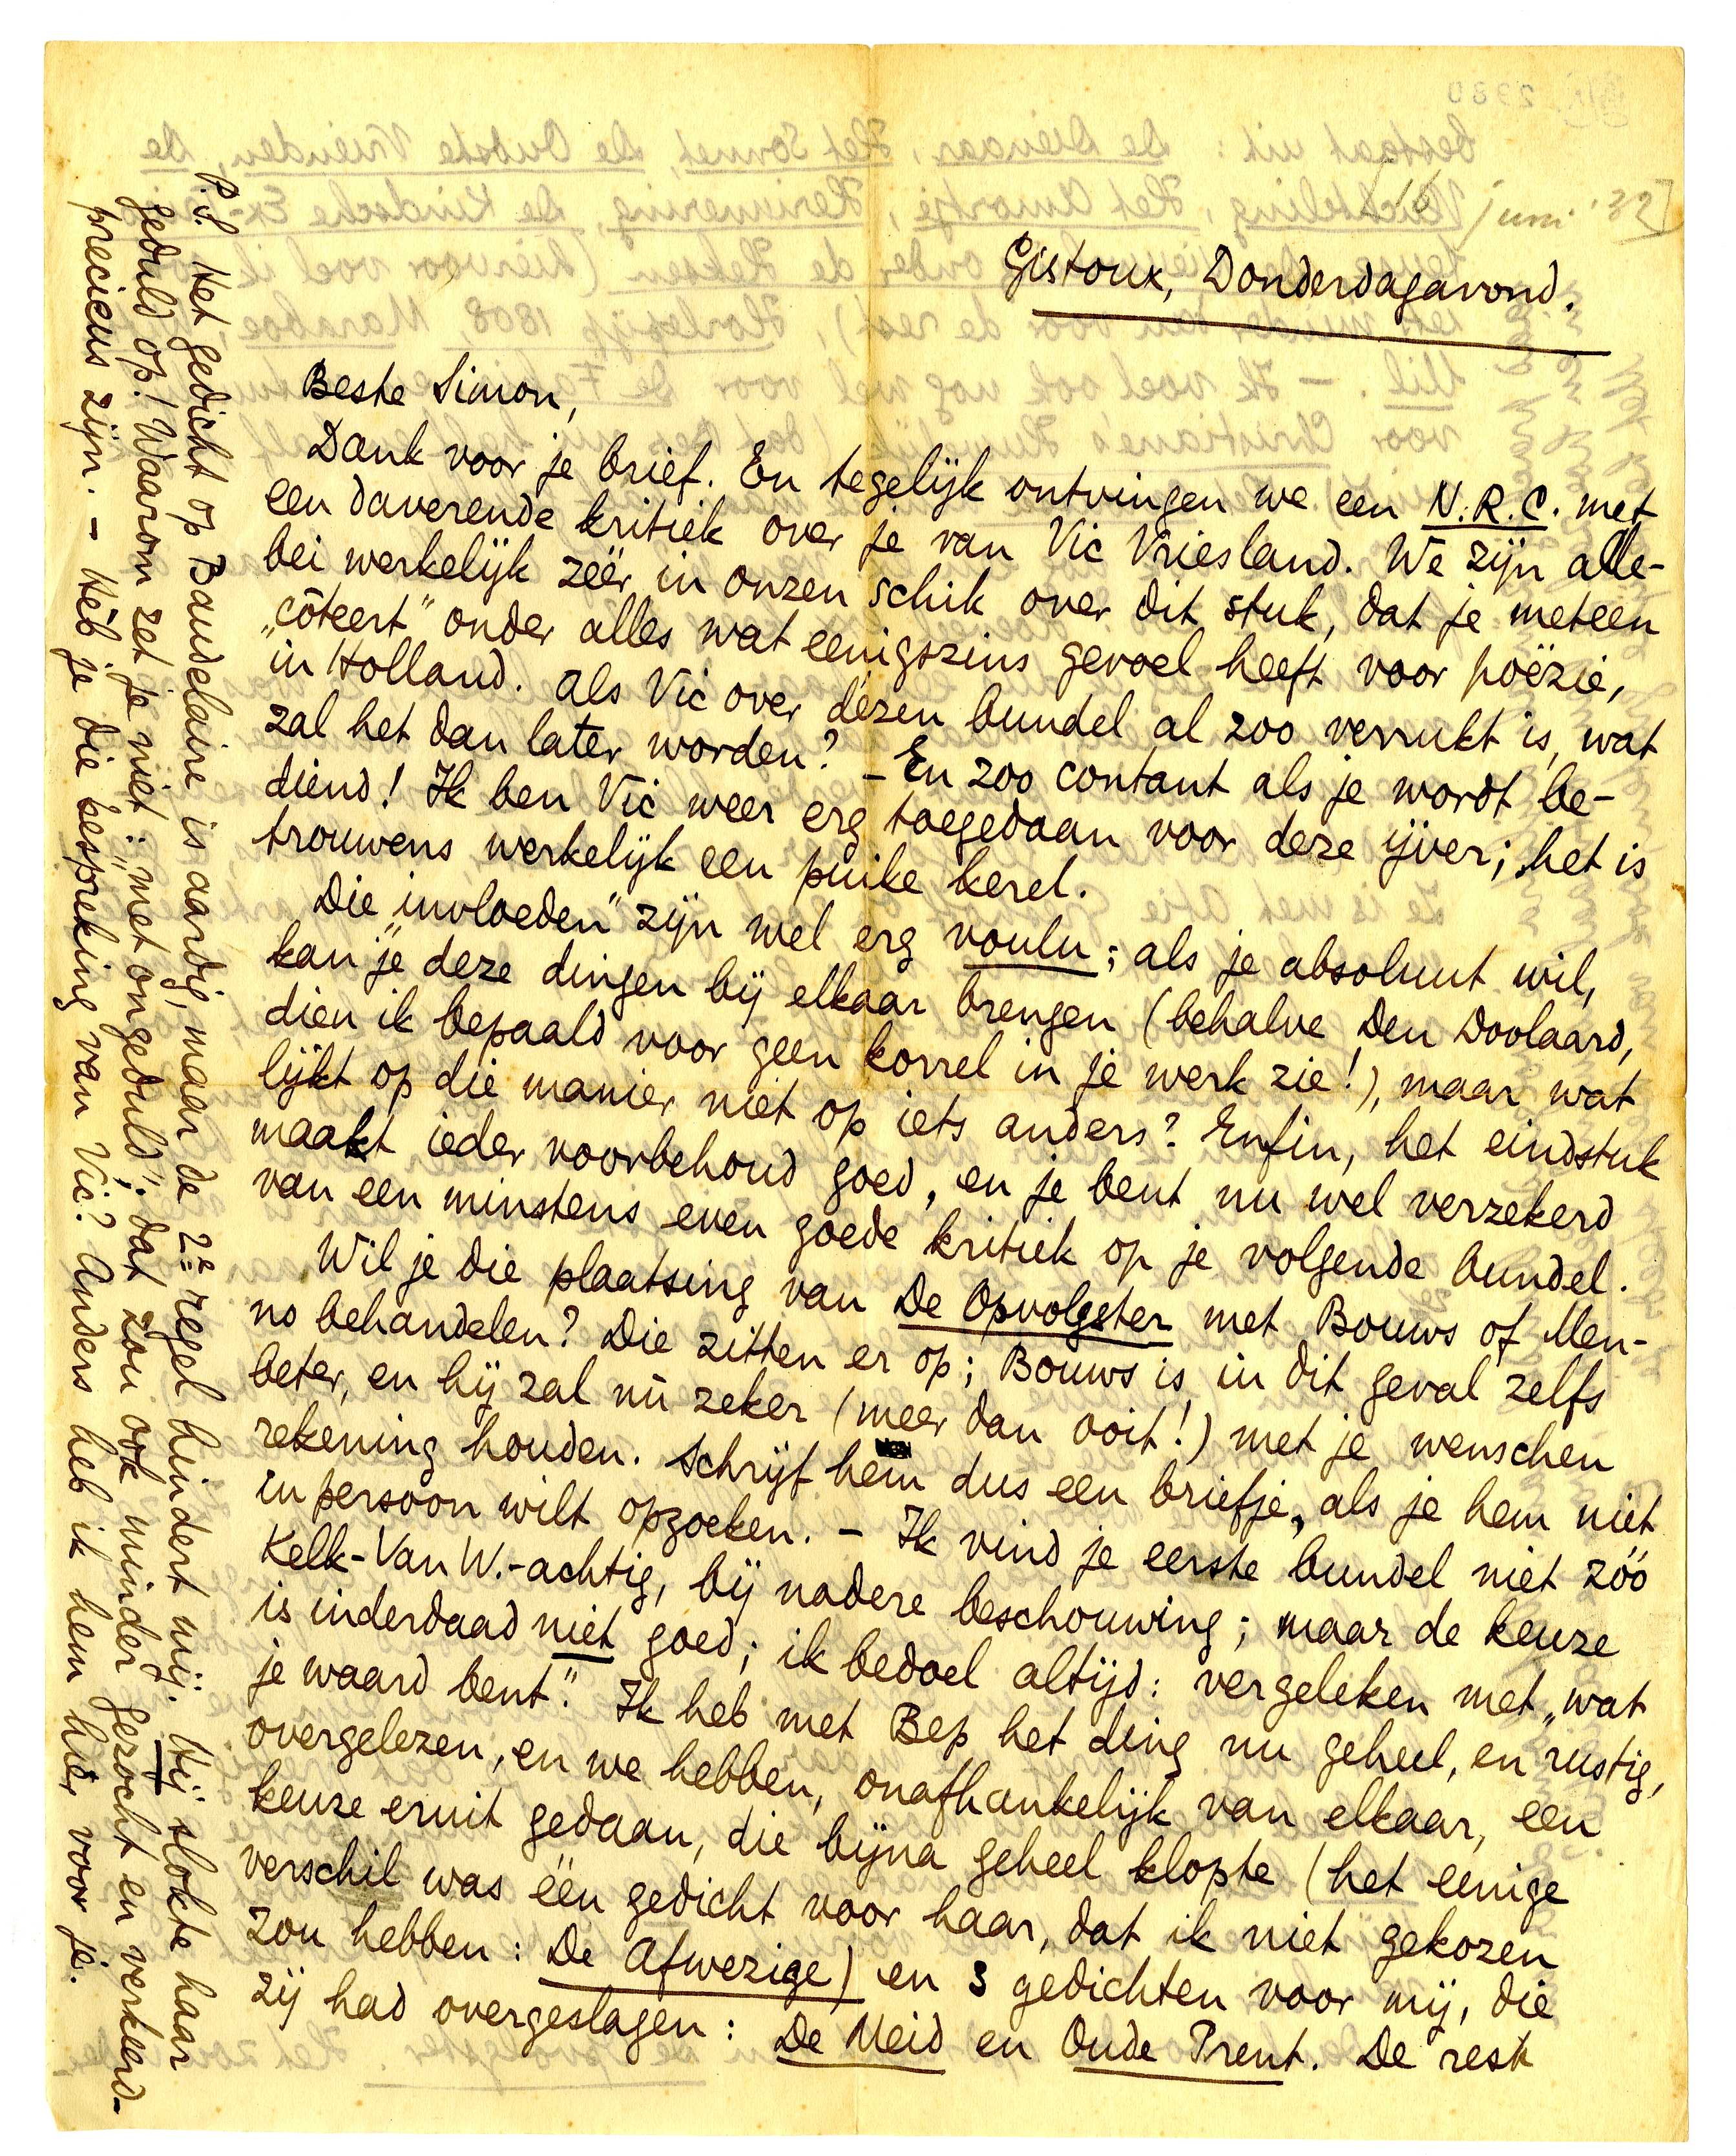 [16 juni '32]
Gistoux, Donderdagavond.
Beste Simon,
Dank voor je brief. En tegelijk ontvingen we een N.R.C. met
een daverende kritiek over je van Vic Vriesland. We zijn alle-
bei werkelijk zéér in onzen schik over dit stuk, dat je meteen
„côteert” onder alles wat eenigszins gevoel heeft voor poëzie,
in Holland. Als Vic over dézen bundel al zoo verrukt is, wat
zal het dan later worden? – En zoo contant als je wordt be-
diend! Ik ben Vic weer erg toegedaan voor deze ijver; het is
trouwens werkelijk een puike kerel.
Die „invloeden” zijn wel erg voulu; als je absoluut wil,
kan „je” deze dingen bij elkaar brengen (behalve Den Doolaard,
dien ik bepaald voor geen korrel in je werk zie!), maar wat
lijkt op die manier niet op iets anders? Enfin, het eindstuk
maakt ieder voorbehoud goed, en je bent nu wel verzekerd
van een minstens even goede kritiek op je volgende bundel.
Wil je die plaatsing van De Opvolgster met Bouws of Men-
no behandelen? Die zitten er op; Bouws is in dit geval zelfs
beter, en hij zal nù zeker (meer dan ooit!) met je wenschen
rekening houden. Schrijf hem dus een briefje, als je hem niet
in persoon wilt opzoeken. – Ik vind je eerste bundel niet zóó
Kelk-Van W.-achtig, bij nadere beschouwing; maar de keuze
is inderdaad niet goed; ik bedoel altijd: vergeleken met „wat
je waard bent”. Ik heb met Bep het ding nu geheel, en rustig,
overgelezen, en we hebben, onafhankelijk van elkaar, een
keuze eruit gedaan, die bijna geheel klopte (het eenige
verschil was één gedicht voor haar, dat ik niet gekozen
zou hebben: De Afwezige) en 3 gedichten voor mij, die
zij had overgeslagen: De Meid en Oude Prent. De rest
P.S. Het gedicht op Baudelaire is aardig, maar de 2e regel hindert mij. Hij slokte haar
geduld op! Waarom zet je niet: „met ongeduld”; dat zou ook minder gezocht en verkeerd-
precieus zijn. – Heb je die bespreking van Vic? Anders heb ik hem hier voor je.